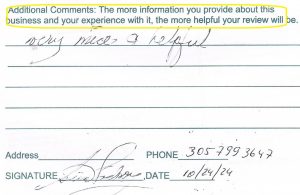 Additional Comments: The more information you provide about this
business and your experience with it, the more helpful your review will be.
very nice & helpful
Address PHONE 305 799 3647
SIGNATURE DATE 10/24/24